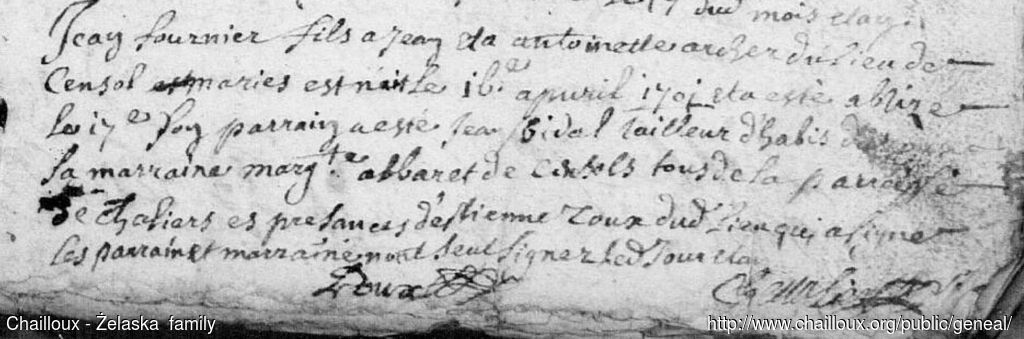 dud mois et an
Jean fournier fils a Jean et a antoinette archer du lieu de
Censol maries est nait le 16e apvril 1701 et a esté abtizé
le 17e son parrain a esté Jean Vidal tailleur d'habis
la marraine margte abbaret de Censols tous de la parroisse
de Chaliers es presances d'estienne Zoux dud lieu qui a signé
les parrain et marraine n'ont seu signer led jour et an
Zoux
Chailloux - Želaska family
http://www.chailloux.org/public/geneal/